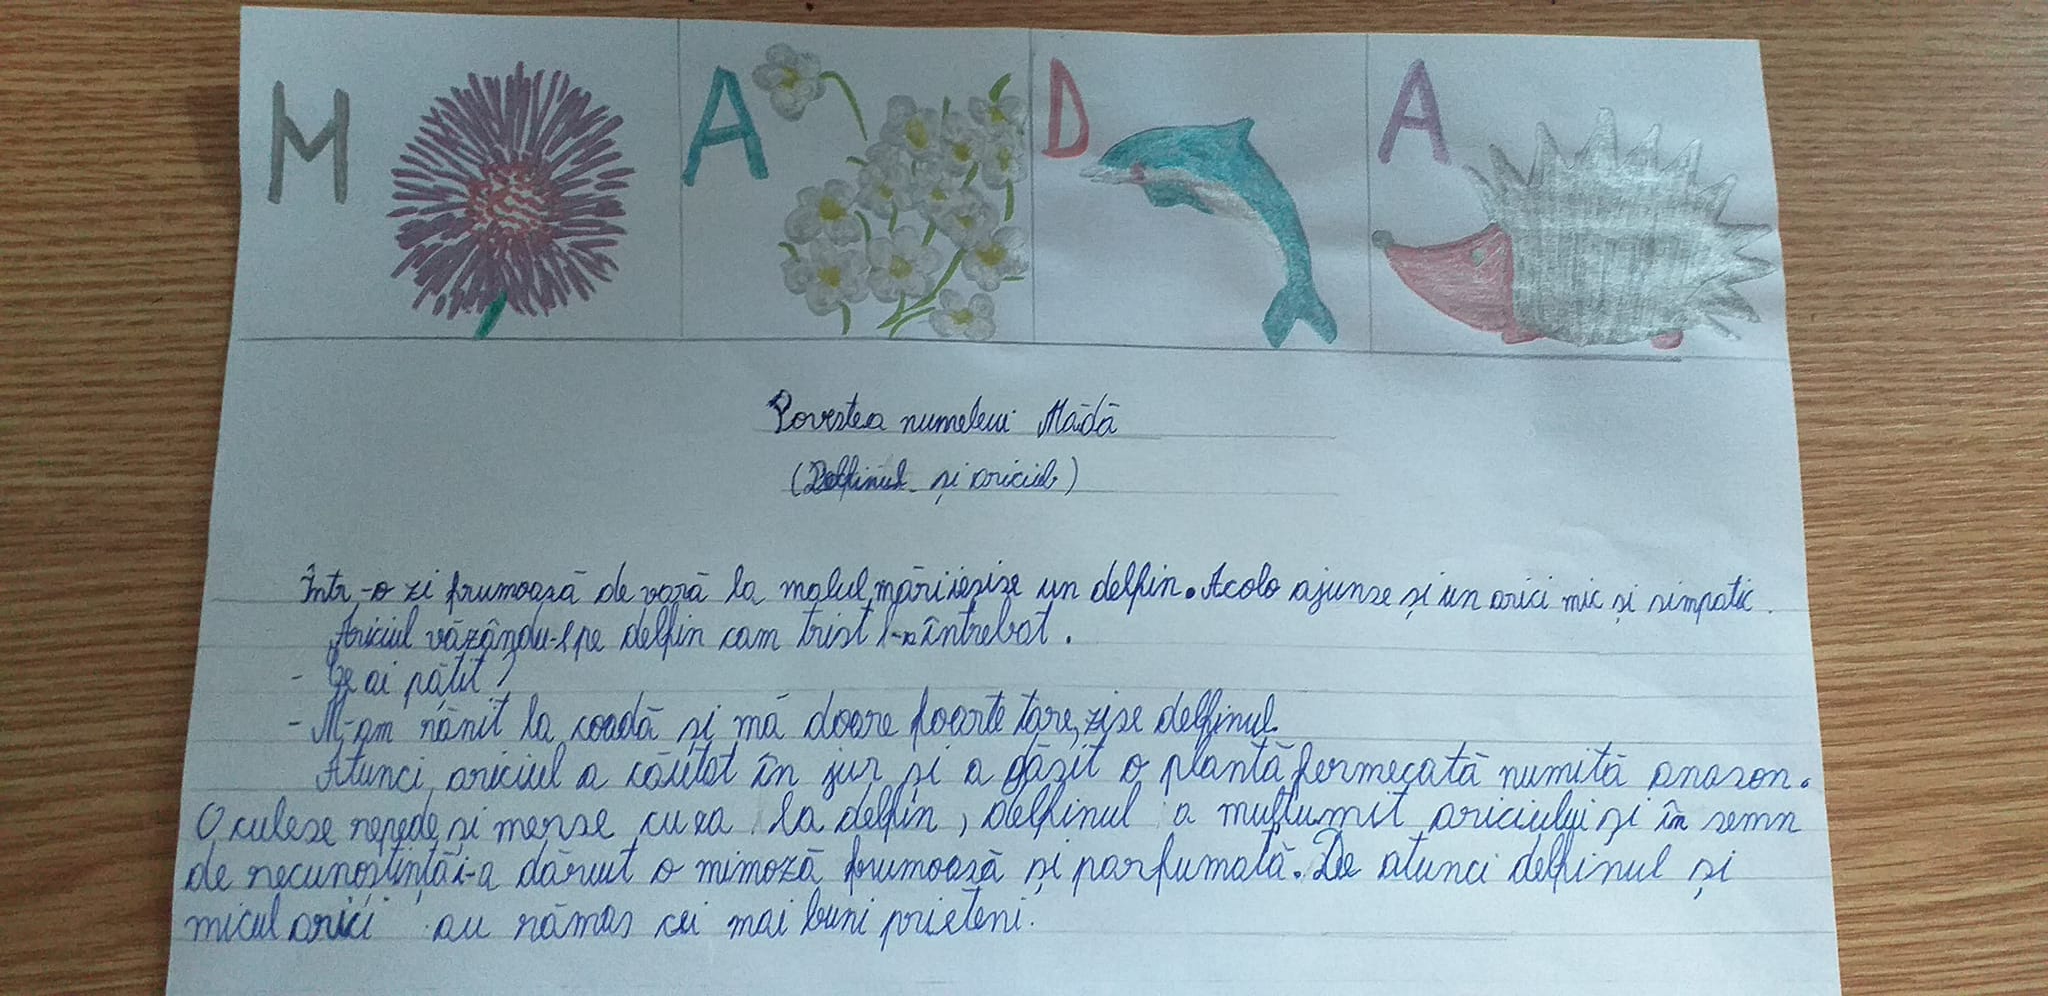 M A D A
Povestea numelui Mădă
(Delfinul și ariciul)
Într-o zi frumoasă de vară la malul mării ieșise un delfin. Acolo ajunse și un arici mic și simpatic.
Ariciul văzându-l pe delfin cam trist l-a întrebat.
- Ce ai pățit?
- M-am rănit la coadă și mă doare foarte tare, zise delfinul.
Atunci, ariciul a căutat în jur și a găsit o plantă fermecată numită anason.
O culese repede, și merse cu ea la delfin, delfinul a mulțumit ariciului și în semn
de recunoștință i-a dăruit o mimoză frumoasă și parfumată. De atunci delfinul și
micul arici au rămas cei mai buni prieteni.